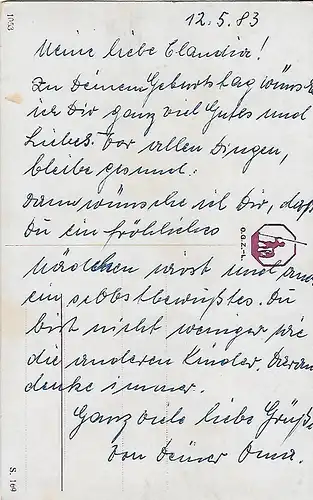 1033
12.5.83
Meine liebe Claudia!
Zu Deinem Geburtstag wünsche
ich Dir ganz viel Gutes und
Liebes. Vor allen Dingen,
bleibe gesund.
Dann wünsche ich Dir, daß
Du ein fröhliches
O.G.Z.-L.
Mädchen wirst und auch
ein selbstbewußtes. Du
bist nicht weniger wie
die anderen Kinder. Daran
denke immer.
Ganz viele liebe Grüße
von Deiner Oma.
S. 169